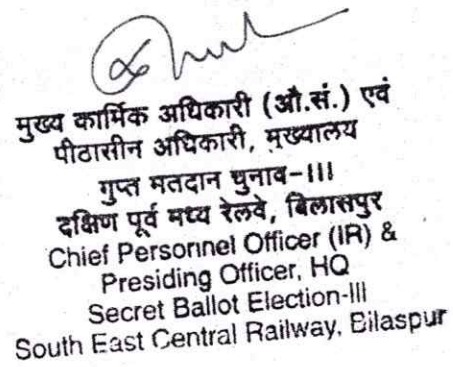 मुख्य कार्मिक अधिकारी (औ.सं.) एवं
पीठासीन अधिकारी, मुख्यालय
गुप्त मतदान चुनाव-III
दक्षिण पूर्व मध्य रेलवे, बिलासपुर
Chief Personnel Officer (IR) &
Presiding Officer, HQ
Secret Ballot Election-III
South East Central Railway, Bilaspur